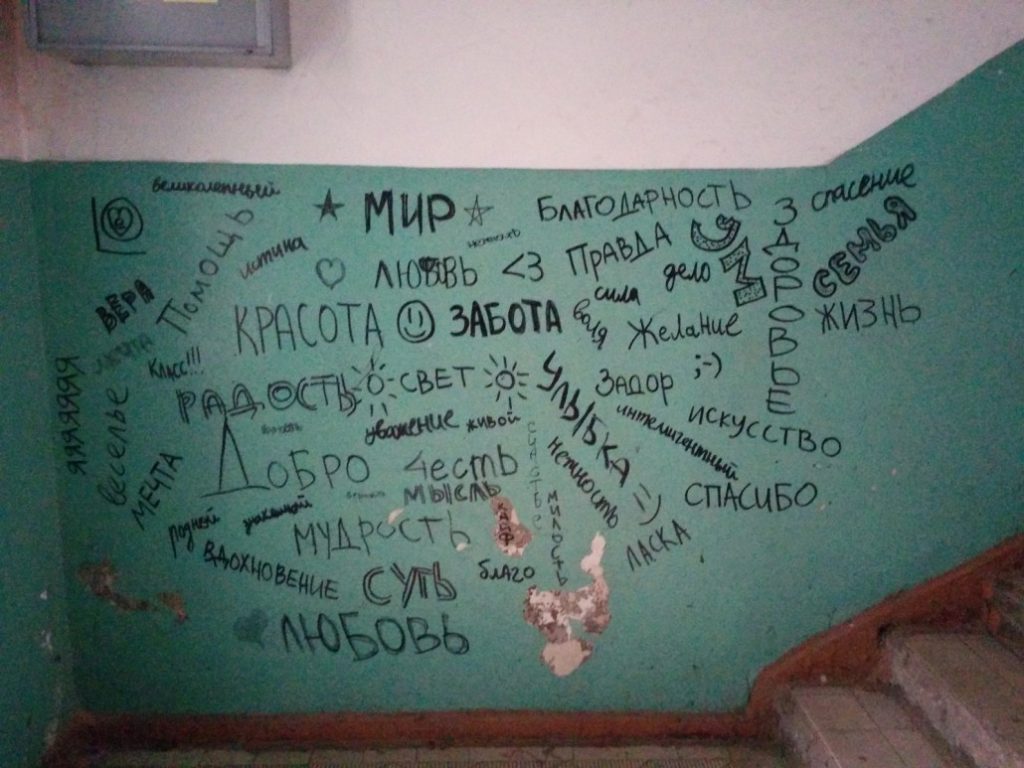 великолепный
МИР
БЛАГОДАРНОСТЬ
спасение
ПОМОЩЬ
истина
ЛЮБОВЬ <3
ПРАВДА
УМ
ЗДОРОВЬЕ
СЕМЬЯ
дело
сила
ВЕРА
КРАСОТА
ЗАБОТА
воля
Желание
ЖИЗНЬ
мечта
КЛАСС!!!
РАДОСТЬ
СВЕТ
УЛЫБКА =)
ЗАДОР ;-)
интелигентный
ИСКУССТВО
яяяяяяя
веселье
МЕЧТА
уважение
живой
счастье
нежность
ДОБРО
Честь
МЫСЛЬ
СПАСИБО
родной
МУДРОСТЬ
КАЙФ
МИЛОСТЬ
ЛАСКА
ВДОХНОВЕНИЕ
СУТЬ
благо
ЛЮБОВЬ